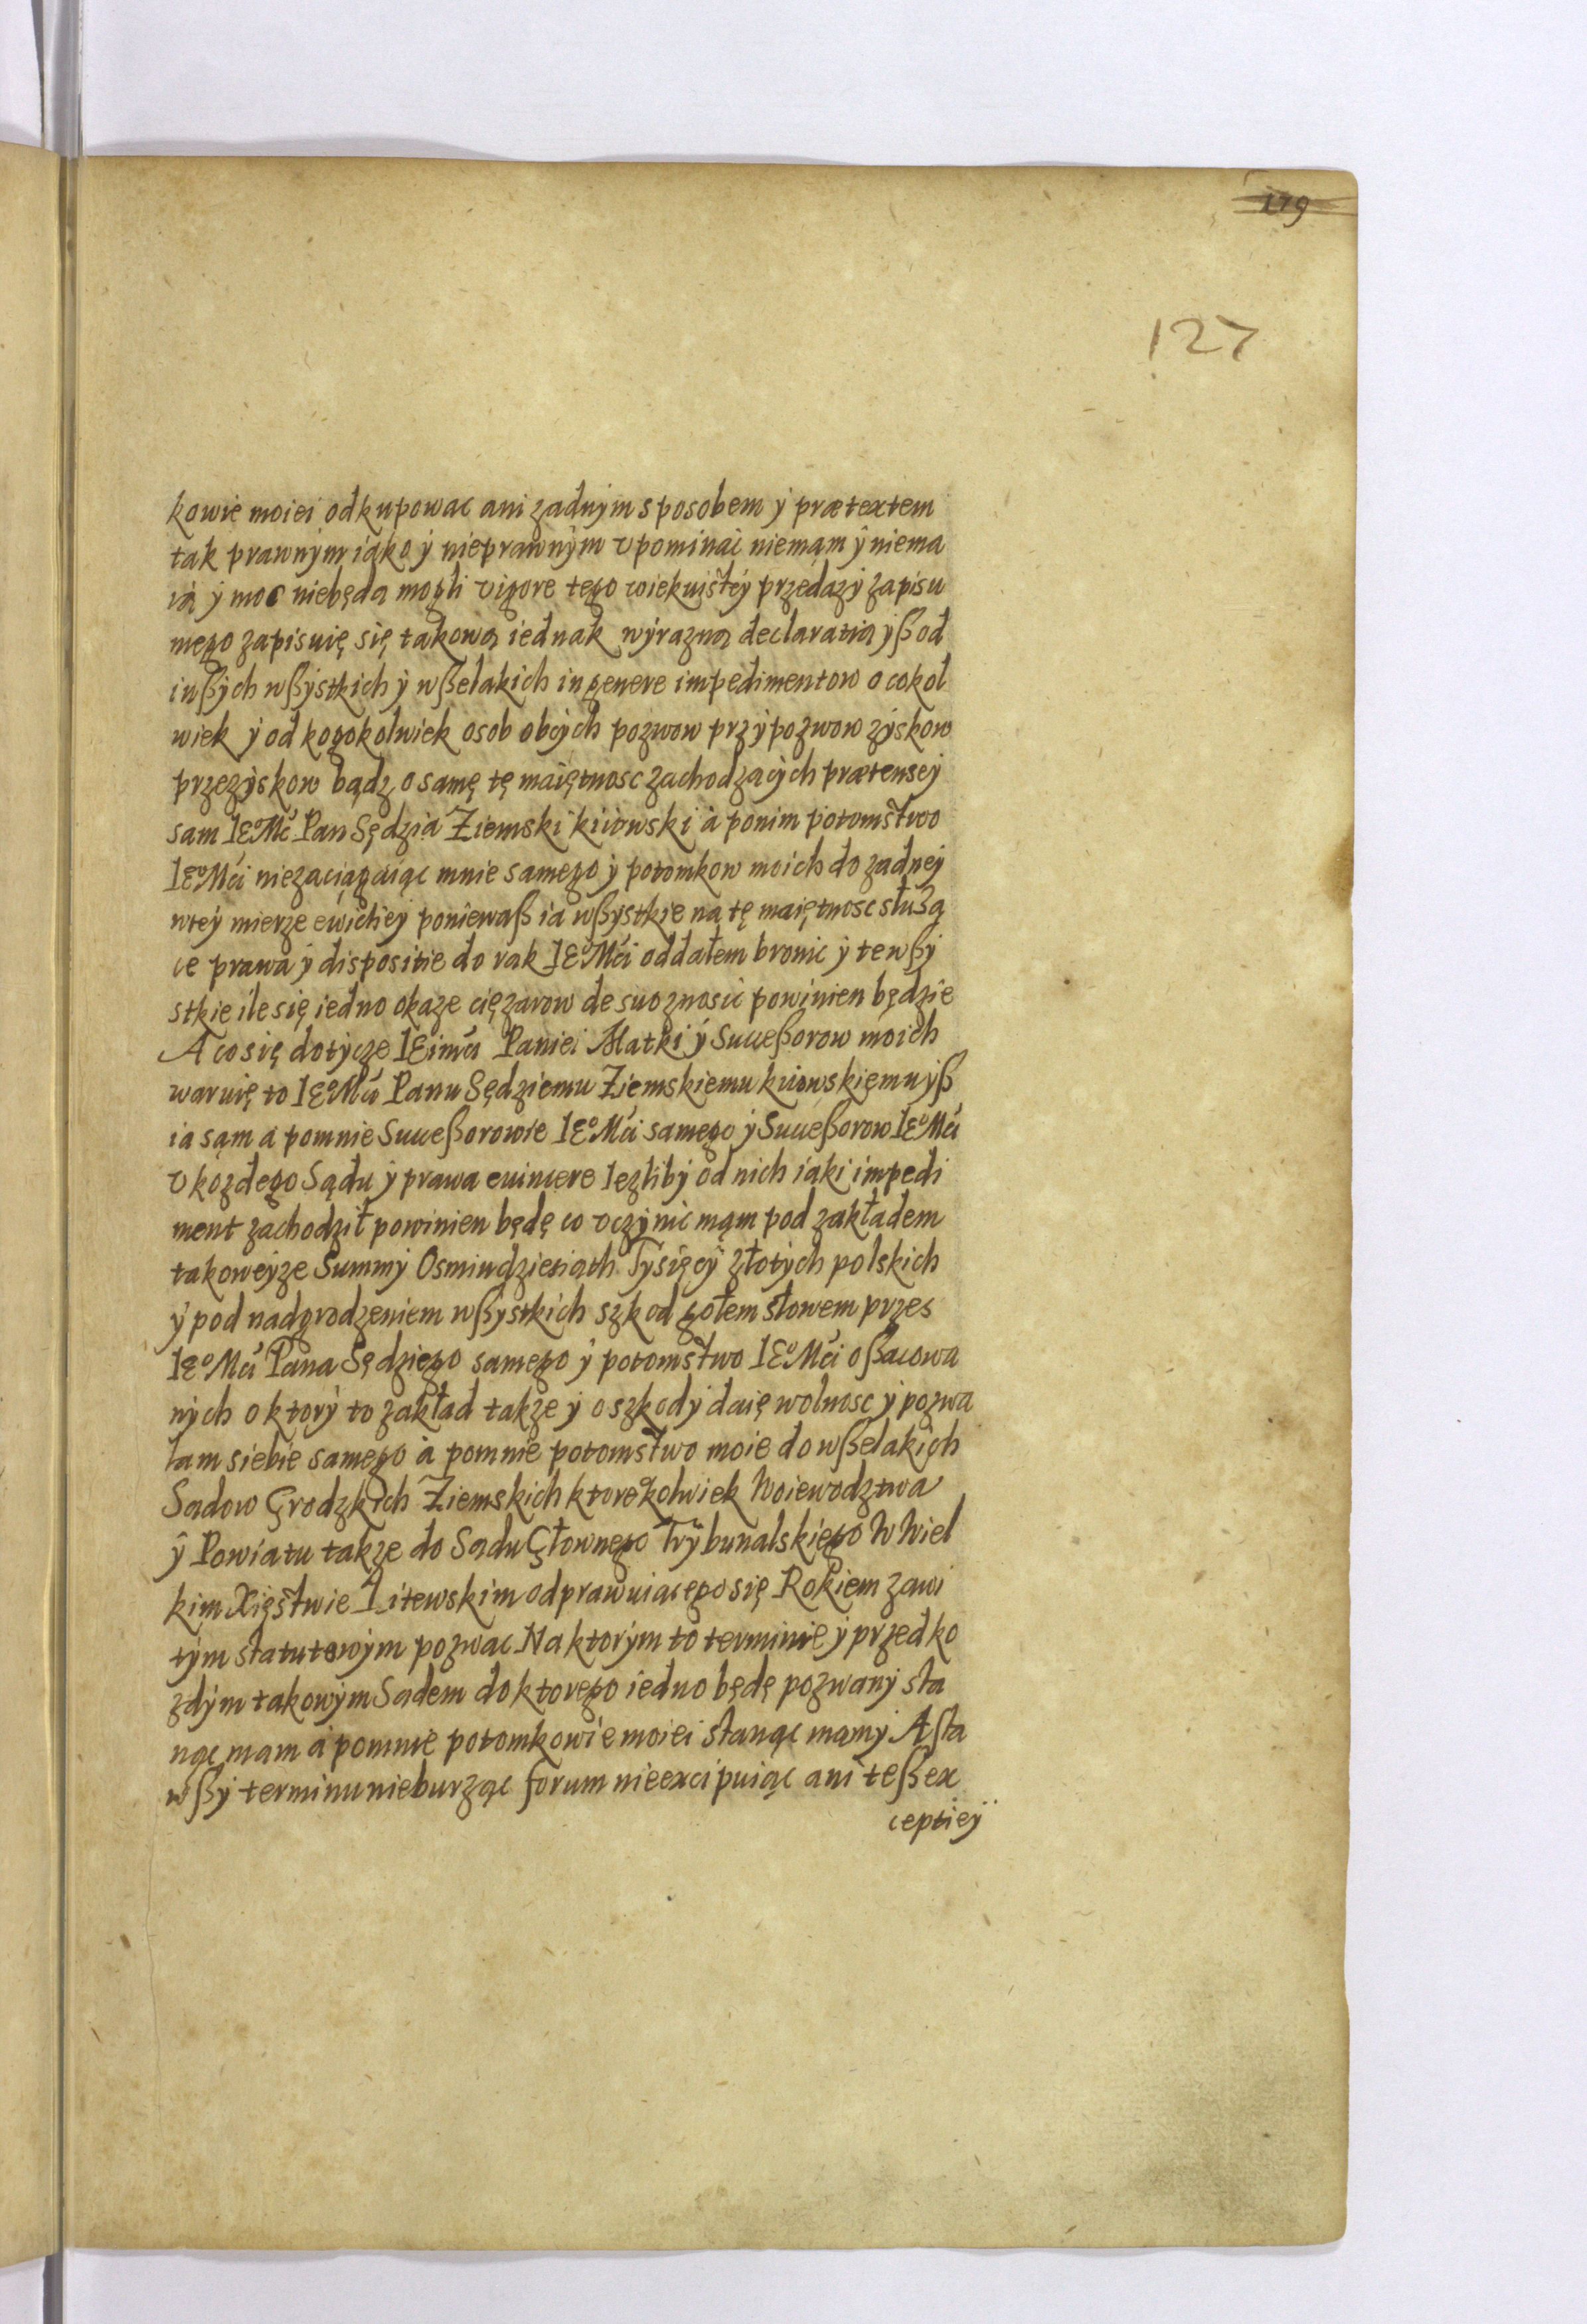 179
127
kowie moiei odkupowac ani zadnym sposobem ÿ prætextem
tak prawnym iako ÿ nieprawnym vpominac niemąm ÿ niema
ią ÿ moc niebęda mogli vigore tego wiekuistéÿ przedazÿ zapisu
mego zapisuię się takową iednak wÿrazną declaratią ÿß od
inßÿch wßÿstkich ÿ wßelakich in genere impedimentow o cokol
wiek ÿ od kogokolwiek osob obcÿch pozwow przÿpozwow zÿskow
przezÿskow bądz o samę tę maiętnosc zachodzącÿch prætenseÿ
sam IEº Mć Pan Sędzia Ziemski kiiowski à ponim potomstwo
IEº Mći niezaciągaiąc mnie samego ÿ potomkow moich do zadneÿ
wteÿ mierze ewictieÿ poniewaß ia wßÿstkie na tę maiętnosc służą
ce prawa ÿ dispositie do rak IEº Mći oddałem bronic ÿ te wßÿ
stkie ile się iedno okaze cięzarow de suo znosic powinien będzie
A co się dotÿcze IEimći Paniei Matki ÿ Sucßeßorow moich
waruię to IEº Mći Panu Sędziemu Ziemskiemu kiiowskiemu ÿß
ia sąm a pomnie Succeßorowie IEº Mći samego ÿ Succeßorow IEº Mći
v kozdego Sądu ÿ prawa euincere Iezlibÿ od nich iaki impedi
ment zachodził powinien będę co vczÿnic mąm pod zakładem
takoweÿze Summÿ Osmiudziesiąth Tÿsięcÿ złotÿch polskich
ÿ pod nadgrodzeniem wßÿstkich szkod gołem słowem przes
IEº Mći Pana Sędziego samego ÿ potomstwo IEº Mći oßacowa
nÿch o ktorÿ to zakład takze ÿ o szkodÿ daię wolnosc ÿ pozwa
lam siebie samego à pomnie potomstwo moie do wßelakich
Sadow Grodzkich Ziemskich ktoregokolwiek Woiewodztwa
ÿ Powiatu takze do Sadu Głownego Trÿbunalskiego W Wiel
kim Xięstwie Litewskim odprawuiacego się Rokiem zawi
tÿm statutowÿm pozwac Na ktorÿm to terminie ÿ przed ko
zdÿm takowÿm Sadem do ktorego iedno będę pozwanÿ sta
nąc mam à pomnie potomkowie moiei stanąc mamÿ A sta
wßÿ terminu nieburząc forum nieexcipuiąc ani teß ex
ceptieÿ